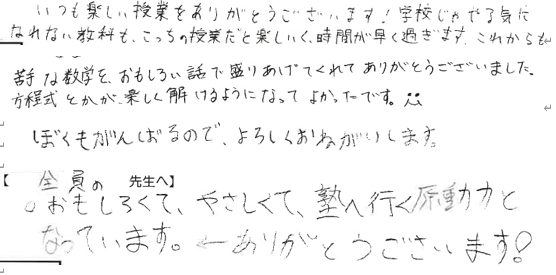 いつも楽しい授業をありがとうございます！学校じゃやる気に
なれない教科も、こっちの授業だと楽しいく、時間が早く過ぎます。これからも
苦手な数学を、おもしろい話で盛りあげてくれてありがとうございました。
方程式とかが、楽しく解けるようになってよかったです。
ぼくもがんばるので、よろしくおねがいします。
【全員の 先生へ】
○おもしろくて、やさしくて、塾へ行く原動力と
なっています。←ありがとうございます！